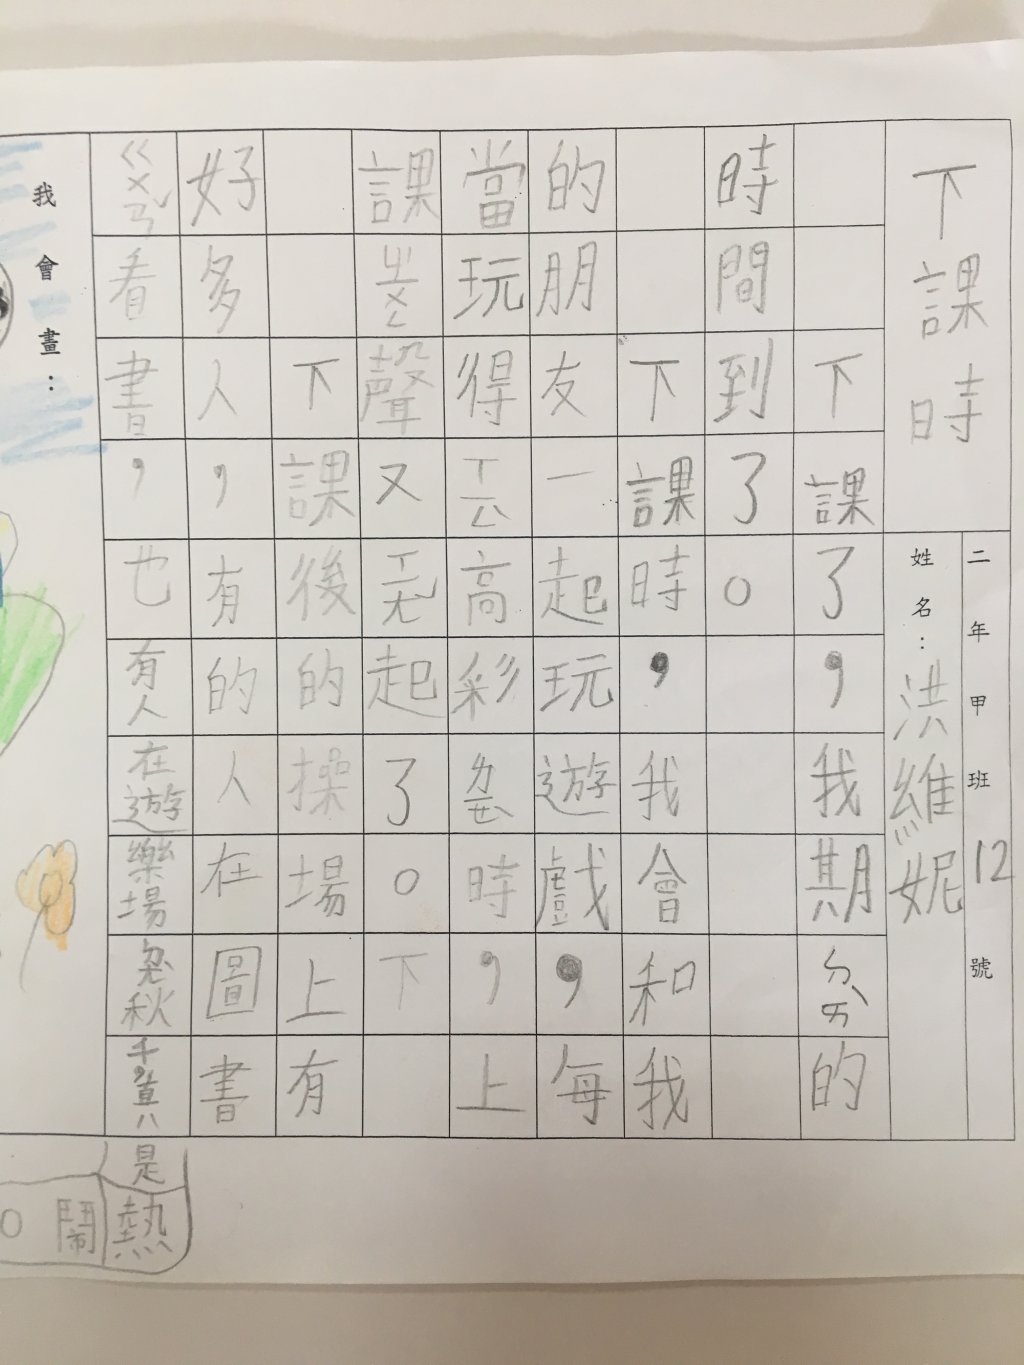 下課時
二年甲班12號
姓名：洪維妮
下課了，我期ㄉㄞˋ的
時間到了。
下課時，我會和我
的朋友一起玩遊戲，每
當玩得ㄒㄧㄥ高彩ㄌㄧㄝ時，上
課ㄓㄨㄥ聲又ㄒㄧㄤ起了。下
下課後的操場上有
好多人，有的人在圖書
ㄍㄨㄢˇ看書，也有人在遊樂場秋千，真是熱鬧。
我會畫：